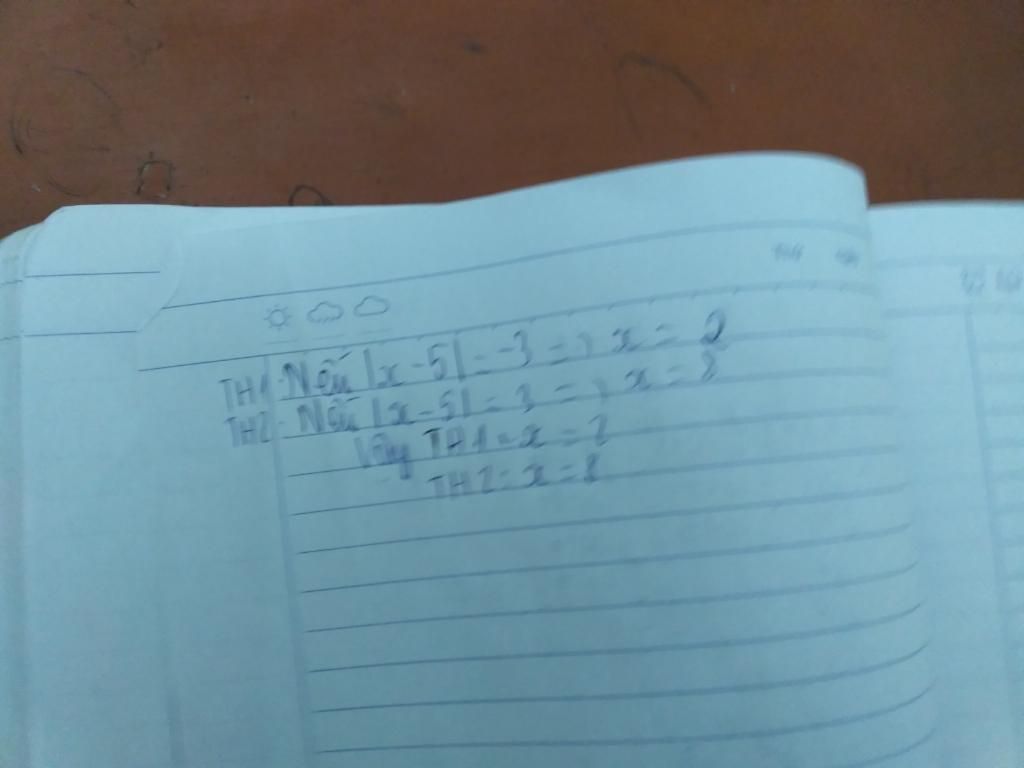 TH1: Nếu |x - 5| = -3 => x = 2
TH2: Nếu |x - 5| = 3 => x = 8
Vậy TH1: x = 2
TH2: x = 8